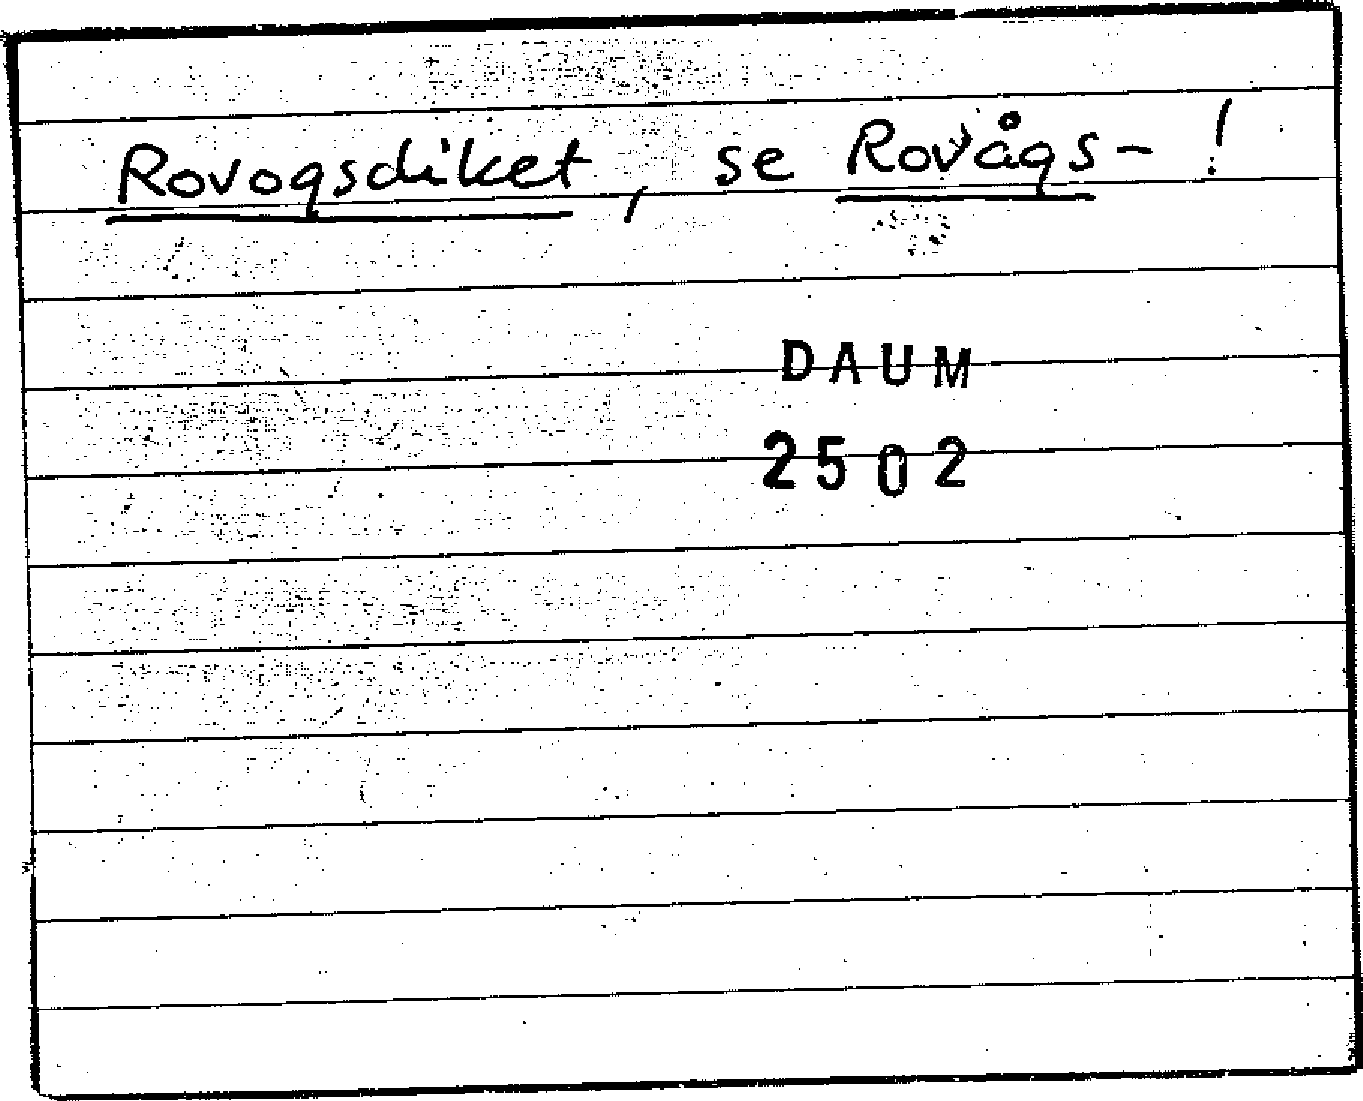 Rovogsdiket, se Rovågs-!
DAUM
2502